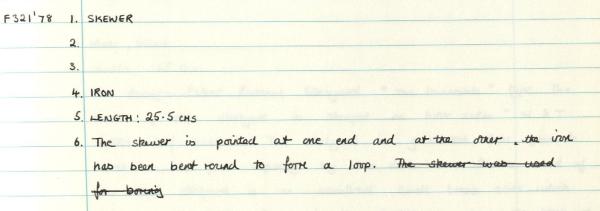 F321'78 1. SKEWER
2.
3.
4. IRON
5. LENGTH: 25.5 CMS
6. The skewer is pointed at one end and at the other, the iron
has been bent round to form a loop. The skewer was used
for boring